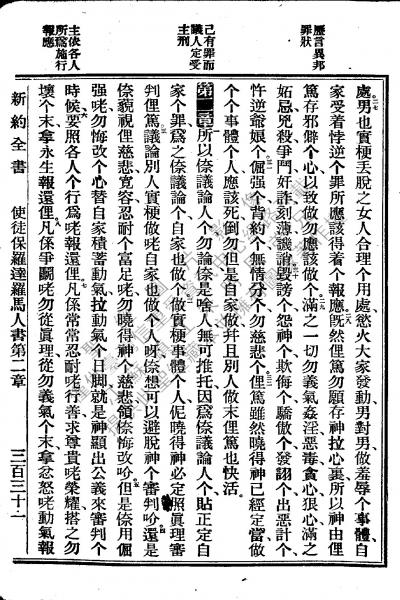 歷言異邦
罪狀
己有罪而
議人定受
主刑
主依各人
所爲施行
報應
處男也實梗丟脫之女人合理个用處慾火大家發動男對男做羞辱个事體自
家受着悖逆个罪所應該得着个報應旣然俚篤勿願存神拉心裏所以神由俚
篤存邪僻个心以致做勿應該做个滿之一切勿義氣姦淫惡毒貪心狠心滿之
妬忌兇殺爭鬥奸詐刻薄讒謗毀謗个怨神个欺侮个驕傲个發誇个出惡計个
忤逆爺娘个倔强个背約个無情分个勿慈悲个俚篤雖然曉得神已經定當做
个个事體个人應該死倒勿但是自家做幷且別人做末俚篤也快活
第二章所以倷議論人个勿論倷是啥人無可推托因爲倷議論人个貼正定自
家个罪爲之倷議論个自家也做个做實梗事體个人伲曉得神必定照眞理審
判俚篤議論別人實梗做咾自家也做个人呀倷想可以避脫神个審判吤還是
倷藐視俚慈悲寬容忍耐个富足咾勿曉得神个慈悲領倷悔改吤但是倷用倔
强咾勿悔改个心替自家積蓄動氣拉動氣个日脚就是神顯出公義來審判个
時候要照各人个行爲咾報還俚凡係常常忍耐咾行善求尊貴咾榮耀搭之勿
壞个末拿永生報還俚凡係爭鬭咾勿從眞理從勿義氣个末拿忿怒咾動氣報
新約全書 使徒保羅達羅馬人書第二章 三百三十一